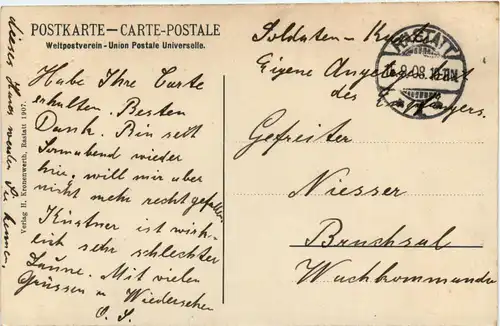 POSTKARTE – CARTE-POSTALE
Weltpostverein - Union Postale Universelle.
Habe Ihre Carte
erhalten. Besten
Dank. Bin seit
Sonnabend wieder
hier, will mir aber
nicht mehr recht gefallen
Küstner ist wirk-
lich sehr schlechter
Laune. Mit vielen
Grüssen u Wiedersehen
O. S.
dieses Haus werden Sie kennen.
Verlag H. Kronenwerth, Rastatt 1907.
Soldaten-Karte
Eigene Angelegenheit
des Empfängers.
RASTATT
Gefreiter
Niesser
Bruchsal
Wachkommando